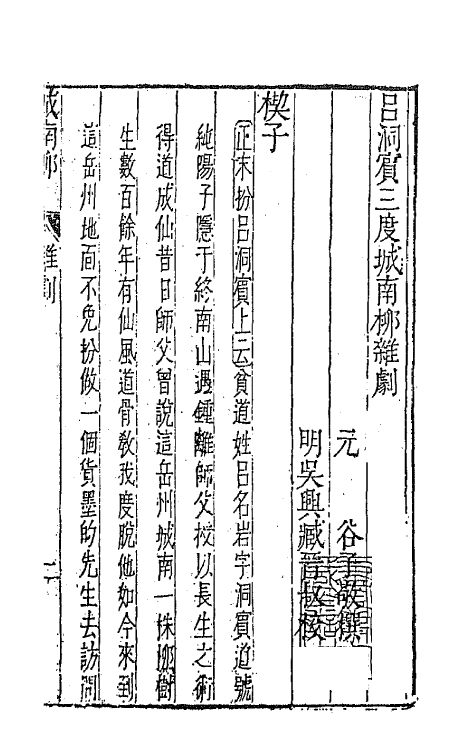 呂洞賓三度城南柳雜劇
元　谷子敬撰
明吳興臧晉叔校
楔子
正末扮呂洞賓上云貧道姓呂名岩字洞賓道號
純陽子隱于終南山遇鍾離師父授以長生之術
得道成仙昔日師父曾說這岳州城南一株柳樹
生數百餘年有仙風道骨教我度脫他如今來到
這岳州地面不免扮做一個貨墨的先生去訪問
城南柳　雜劇　一